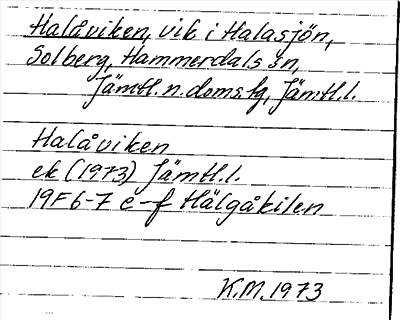 Halåviken, vik i Halasjön,
Solberg, Hammerdals sn,
Jämtl. n. doms tg, Jämtl. l.
Halåviken
ek (1973) Jämtl. l.
19F 6-7 e-f Hälgåkilen
K.M. 1973